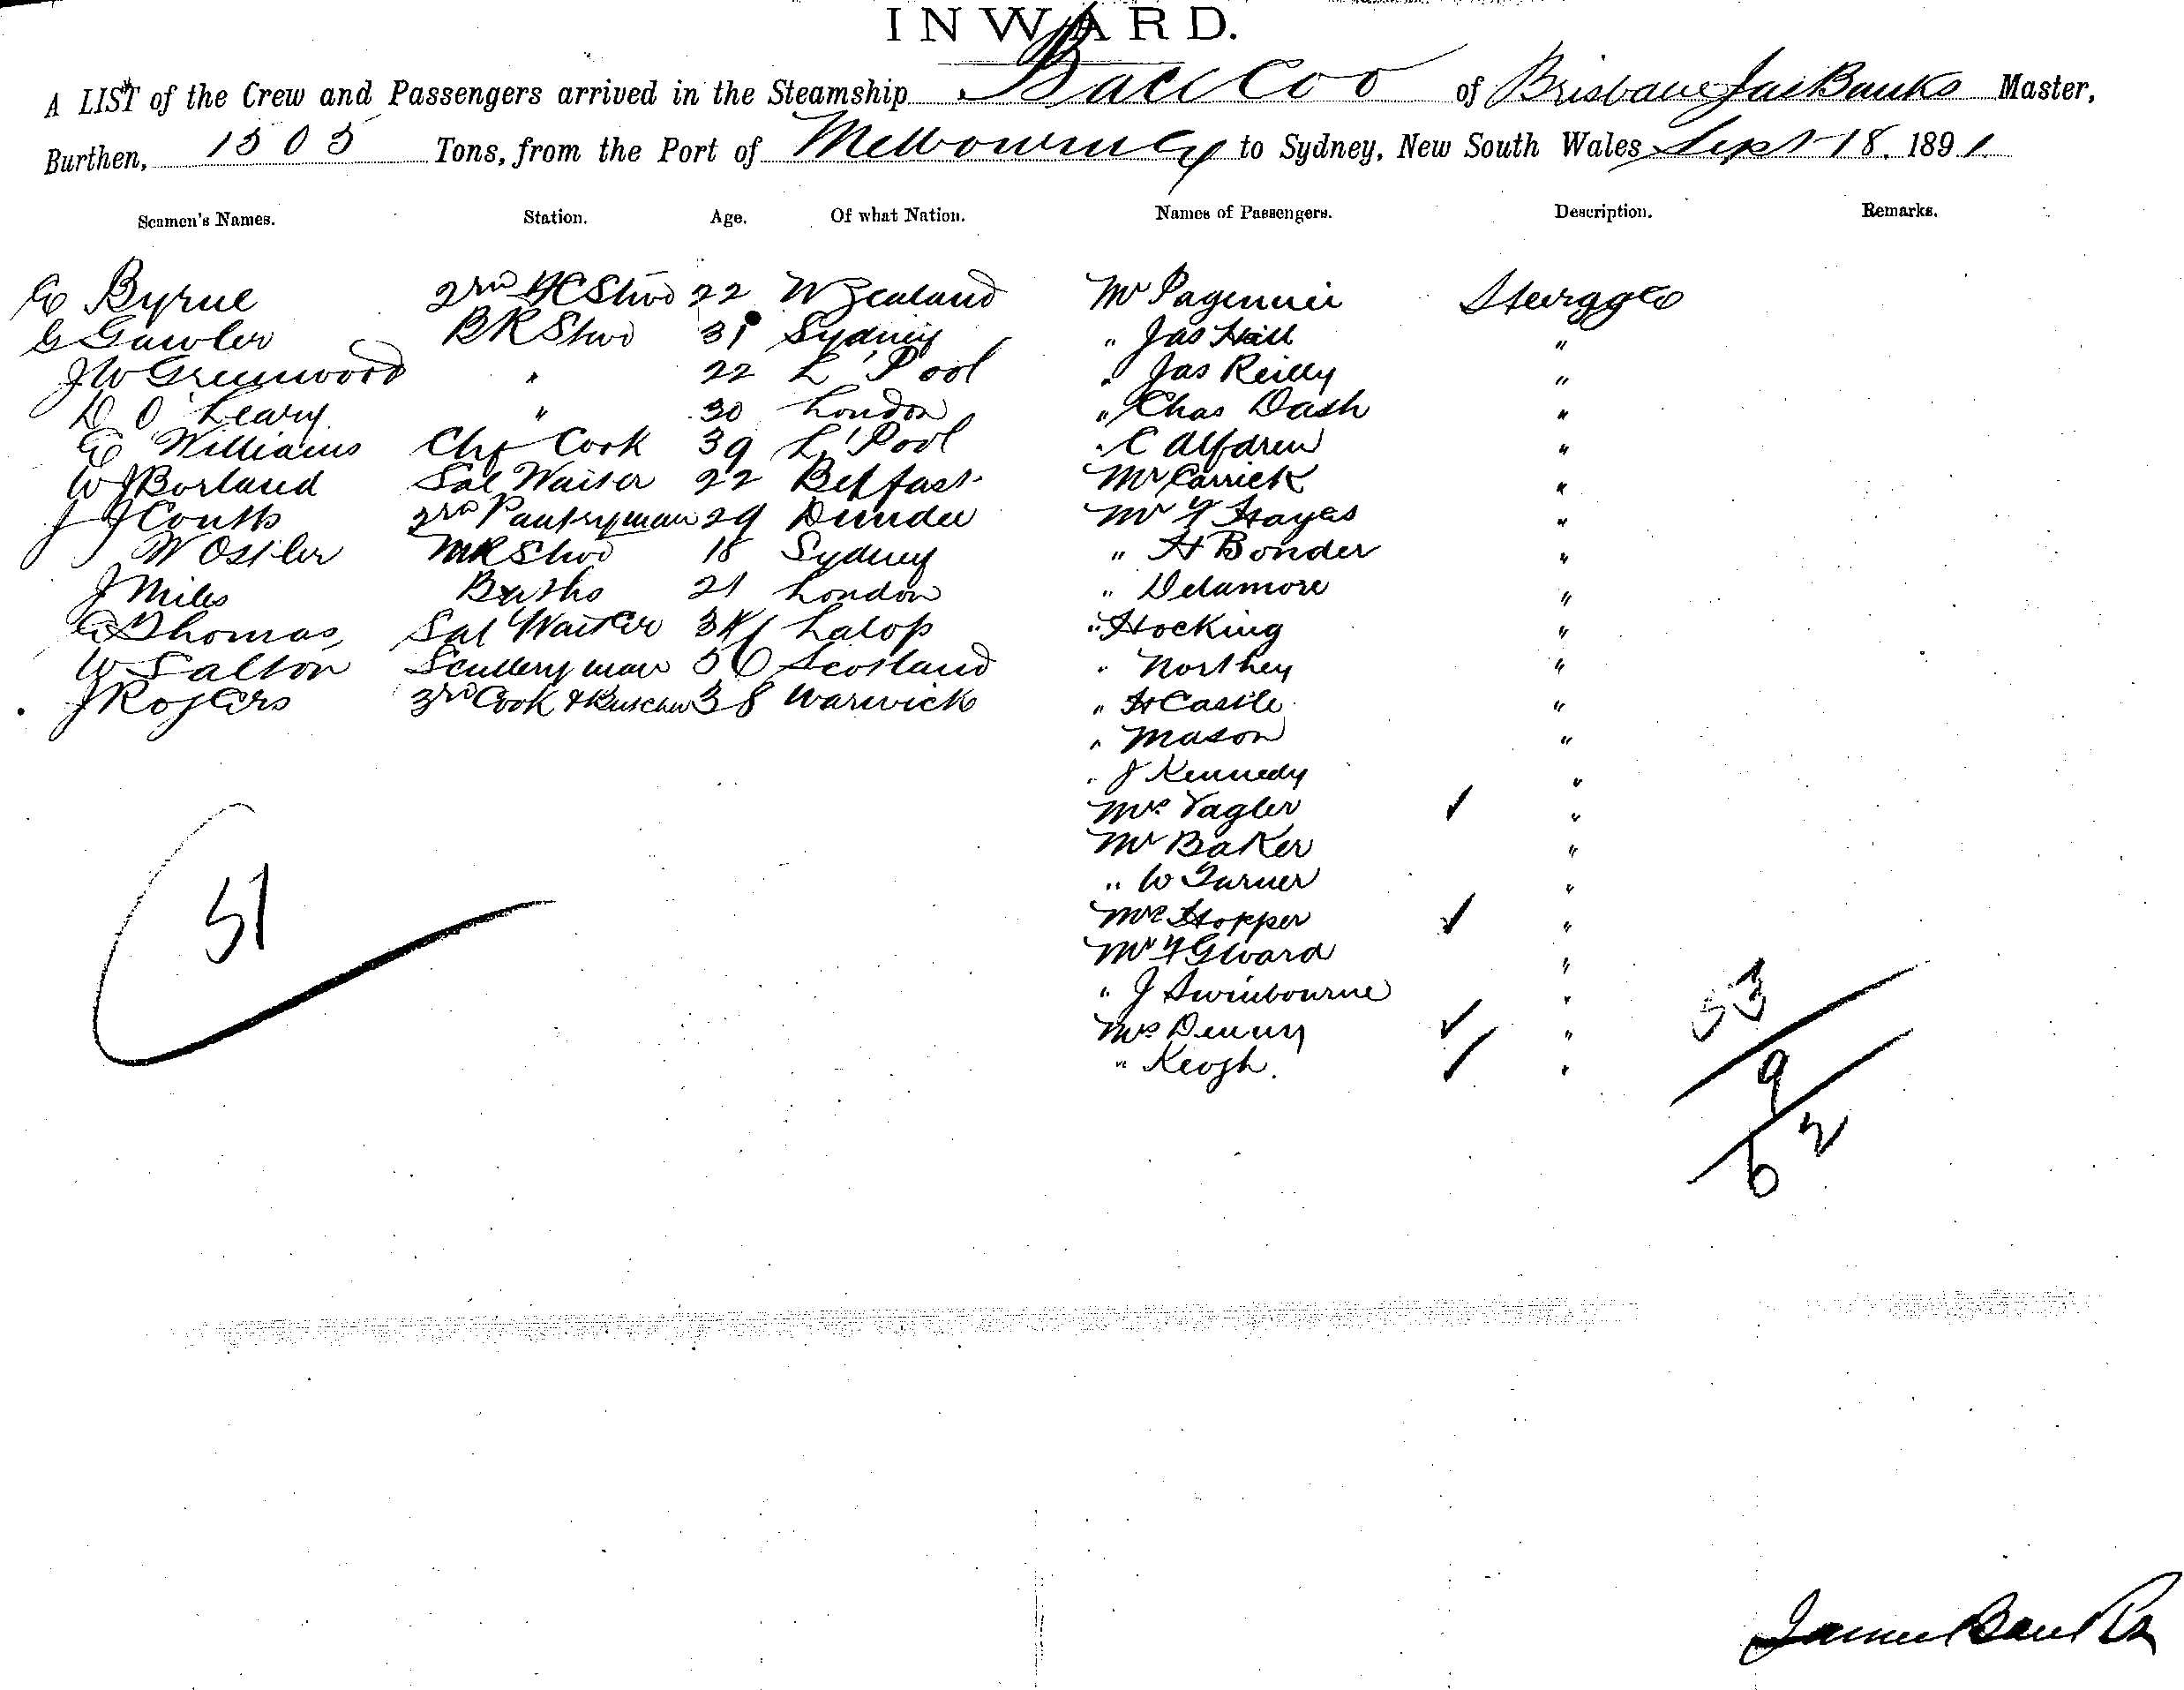 INWARD.
A LIST of the Crew and Passengers arrived in the Steamship Barcoo of Brisbane Jas Banks Master,
Burthen, 1505 Tons, from the Port of Melbourne to Sydney, New South Wales Sept 18. 1891.
Seamen's Names. Station. Age. Of what Nation. Names of Passengers. Description. Remarks.
E Byrne 2nd Stwd 22 N Zealand Mr
G Gawler BR Stwd 31 Sydney " Jas Hall "
J W Greenwood " 22 L'Pool " Jas Reilly "
D O'Leary " 30 London " Chas Dash "
E Williams Chf Cook 39 L'Pool " C "
W J Borland Sal Waiter 22 Belfast Mr Carrick "
J J Coutts Pantryman 29 Dundee Mr Hayes "
W Ostler MR Stwd 18 Sydney " H Bonder "
J Miles Baths 21 London " Delamore "
Thomas Sal Waiter 34 Salop " Hocking "
W Salton Sculleryman 56 Scotland " Northey "
J Rogers 3rd Cook & 38 Warwick " H Castle "
" Mason "
" J Kennedy "
Mrs Vagler ✓ "
Mr Baker "
" W Turner "
Mrs Hopper ✓ "
Mr Ward "
" J Swinbourne "
Mrs Denny ✓ "
" Keogh. ✓ "
51
53
9
62
James Banks